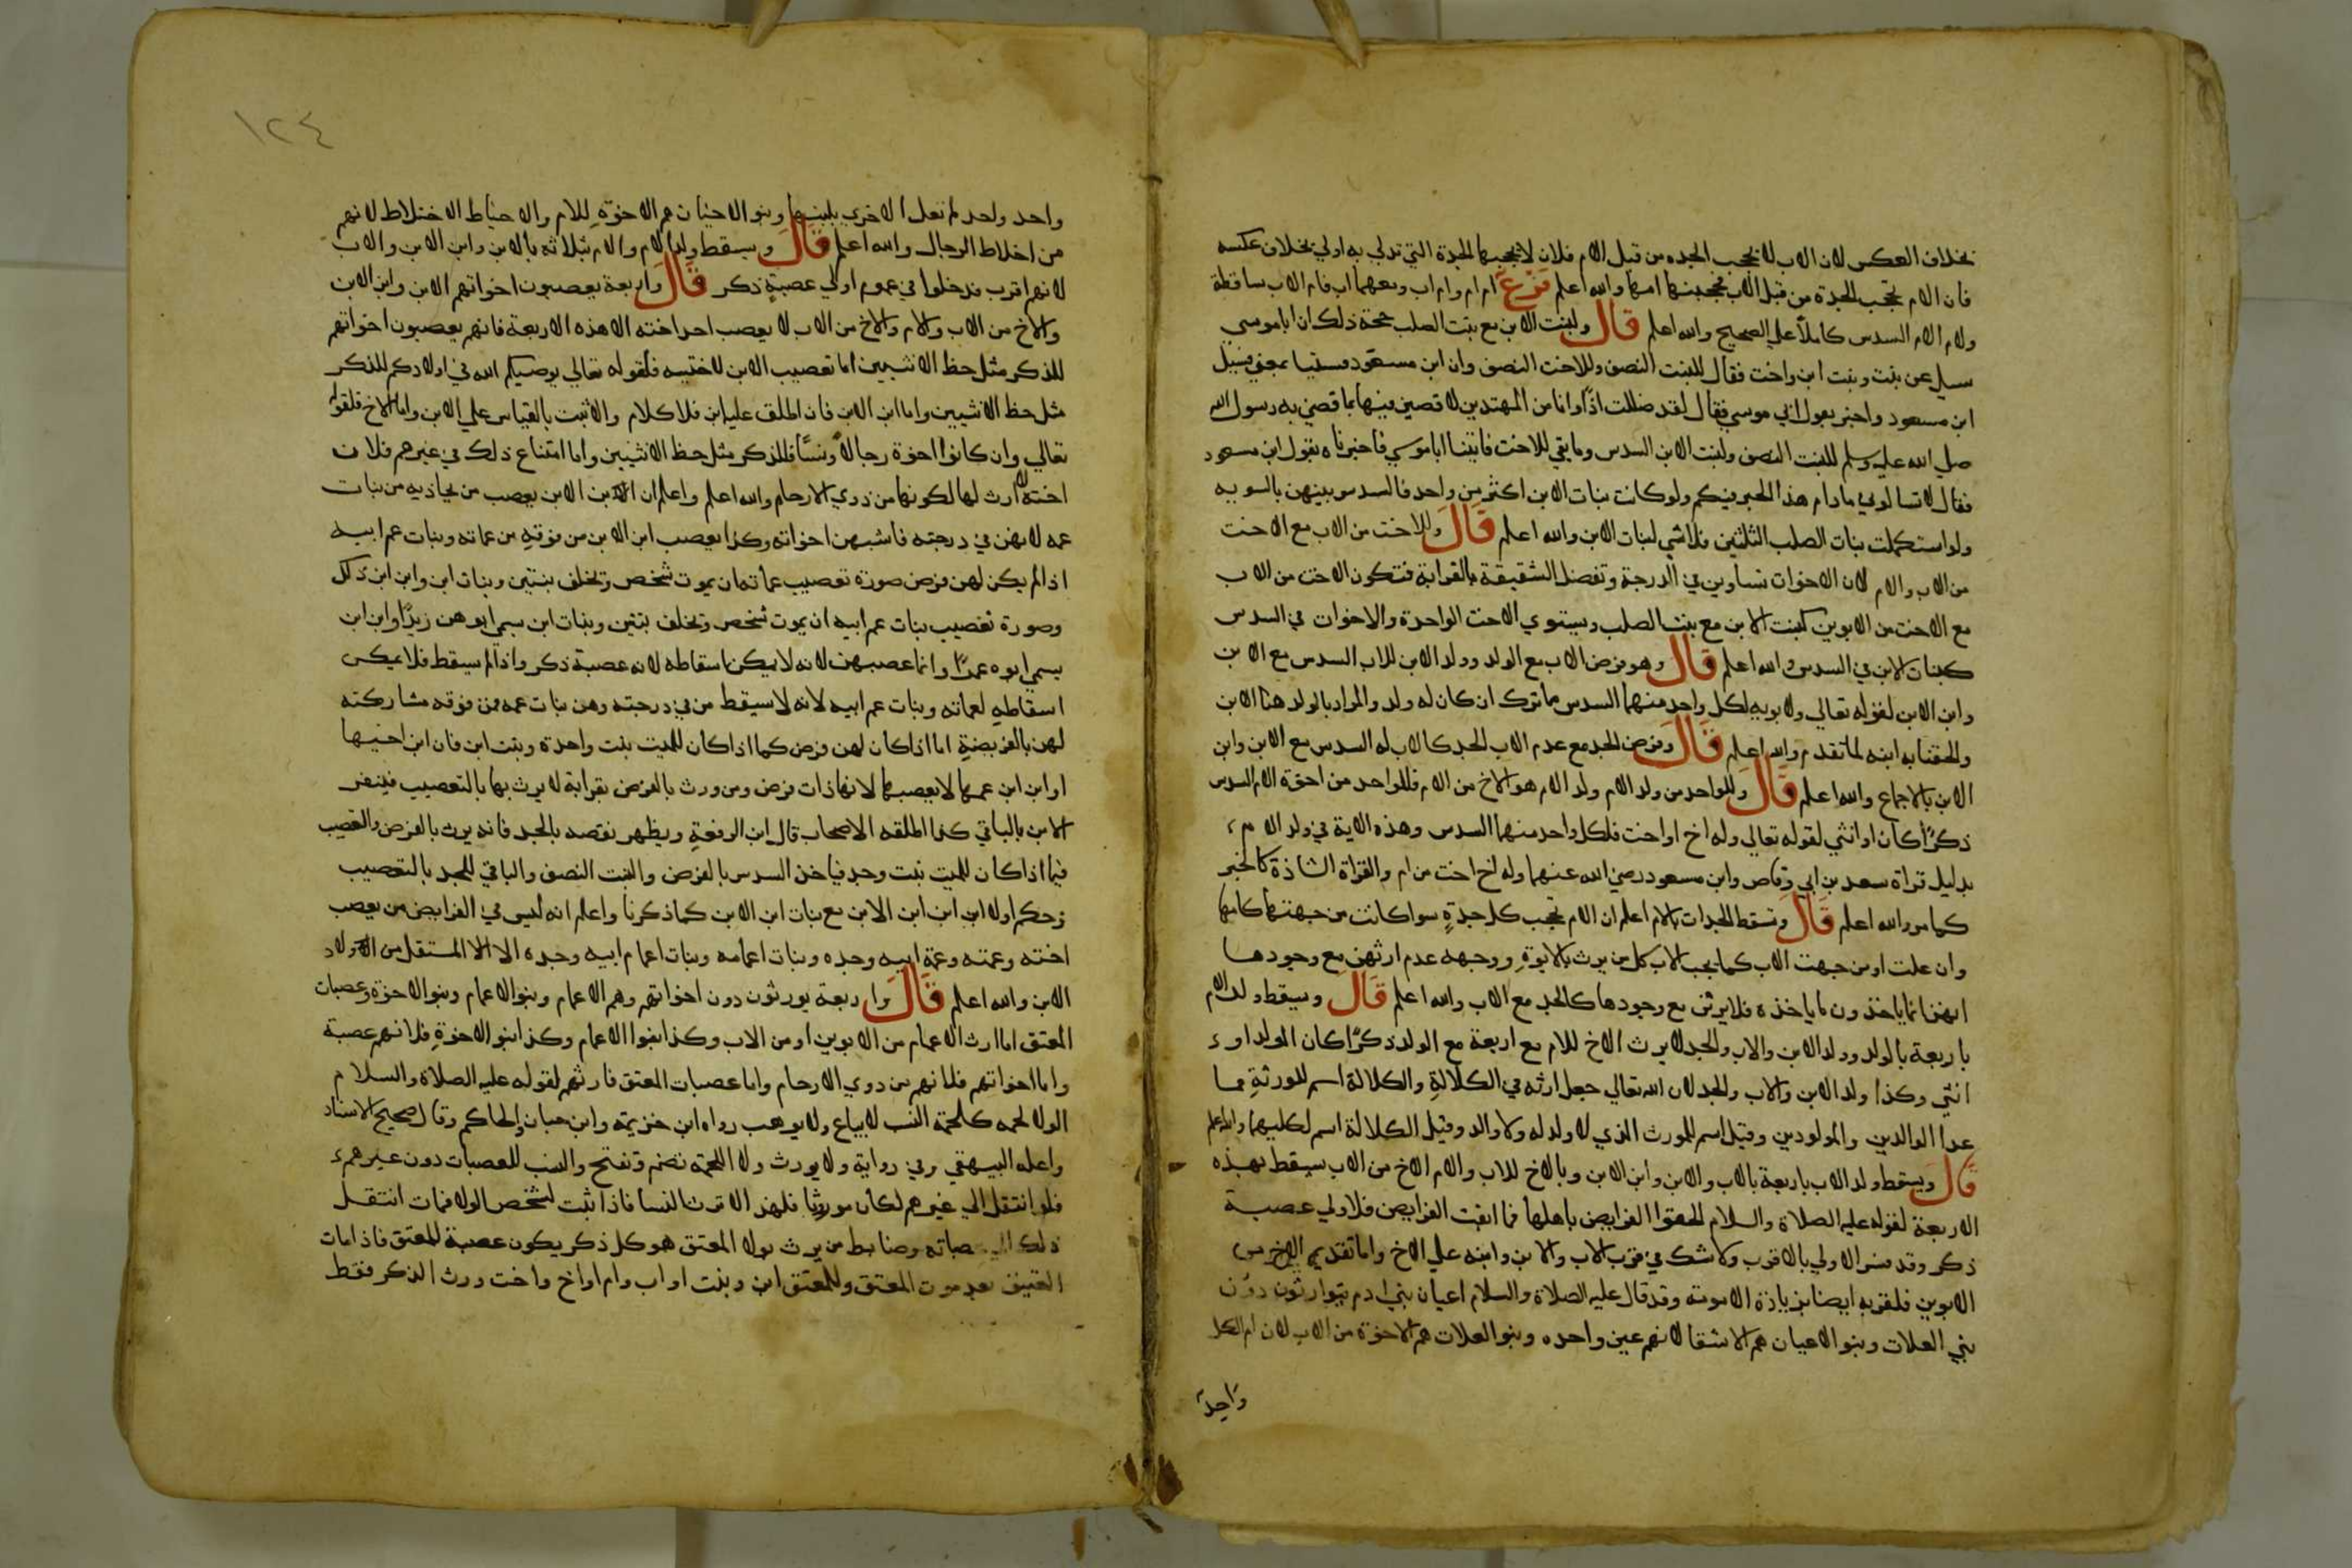 بخلاف العكس لان الاب لا يحجب الجده من قبل الام فلان لا تحجبها الجدة التي تدلي به اولي بخلاف عكسه
فان الام تحجب الجدة من قبل الاب فحجبتها امها والله اعلم فرع ام ام وام اب ومعهما اب فام الاب ساقطة
ولام الام السدس كاملاً علي الصحيح والله اعلم قال ولبنت الابن مع بنت الصلب حجة ذلك ان ابا موسي
سيل عن بنت وبنت ابن واخت فقال للبنت النصف وللاخت النصف وان ابن مسعود فسئل
ابن مسعود واخبر بقول ابي موسي فقال لقد ضللت اذًا وانا من المهتدين لاقضين فيها بما قضي به رسول الله
صلي الله عليه وسلم للبنت النصف ولبنت الابن السدس وما بقي للاخت فاتينا ابا موسي فاخبرناه بقول ابن مسعود
فقال لا تسالوني مادام هذا الحبر فيكم ولو كانت بنات الابن اكثر من واحد فالسدس بينهن بالسويه
ولو استكملت بنات الصلب الثلثين فلا شي لبنات الابن والله اعلم قال وللاخت من الاب مع الاخت
من الاب والام لان الاخوات تساوين في الدرجة وتفضل الشقيقة بالقرابة فتكون الاخت من الاب
مع الاخت من الابوين كبنت الابن مع بنت الصلب ويستوي الاخت الواحدة والاخوات في السدس
كبنات الابن في السدس والله اعلم قال وهو فرض الاب مع الولد وولد الابن للاب السدس مع الابن
وابن الابن لقوله تعالي ولابويه لكل واحد منهما السدس مما ترك ان كان له ولد والمراد بالولد هنا الابن
والحقنا به ابنه لما تقدم والله اعلم قال وفرض الجد مع عدم الاب الجد كالاب له السدس مع الابن وابن
الابن بالاجماع والله اعلم قال وللواحد من ولد الام ولد الام هو الاخ من الام فللواحد من اخوة الام السدس
ذكرًا كان او انثي لقوله تعالي وله اخ او اخت فلكل واحد منهما السدس وهذه الاية في ولد الام
بدليل قراة سعد بن ابي وقاص وابن مسعود رضي الله عنهما وله اخ او اخت من ام والقراة الشاذة كالخبر
كما مر والله اعلم قال وتسقط الجدات بالام اعلم ان الام تحجب كل جدةٍ سوا كانت من جهتها كامها
وان علت او من جهت الاب كما يحجب الاب كل من يرث بالابوةِ ووجهه عدم ارثهن مع وجودها
انهن انما ياخذون ما ياخذه فلا يرثن مع وجودها كالجد مع الاب والله اعلم قال ويسقط ولد الام
باربعة بالولد وولد الابن والاب والجد لا يرث الاخ للام مع اربعة مع الولد ذكرًا كان الولد او
انثي وكذا ولد الابن والاب والجد لان الله تعالي جعل ارثه في الكلالةِ والكلالة اسم للورثةِ مما
عدا الوالدين والمولودين وقيل اسم للمورث الذي لا ولد له ولا والد وقيل الكلالة اسم لكليهما والله اعلم
قال ويسقط ولد الاب باربعة بالاب والابن وابن الابن وبالاخ للاب والام الاخ من الاب يسقط بهذه
الاربعة لقوله عليه الصلاة والسلام الحقوا الفرايض باهلها فما ابقت الفرايض فلاولي عصبة
ذكر وقد فسر الاولي بالاقرب ولا شك في قرب الاب والابن وابنه علي الاخ واما تقديم الاخ من
الابوين فلقربه ايضا بزيادة الامومة وقد قال عليه الصلاة والسلام اعيان بني ادم يتوارثون دون
بني العلات وبنو الاعيان هم الاشقا لانهم عين واحده وبنو العلات هم الاخوة من الاب لان ام الكل
واحد
١٢٤
واحد ولحد لم تعل الاخري بلبنها وبنو الاخيان هم الاخوةِ للام والاخياط الاختلاط لانهم
من اخلاط الرجال والله اعلم قال ويسقط ولد الام والام بثلاثه بالابن وابن الابن والاب
لانهم اقرب فدخلوا في عموم اولي عصبةٍ ذكر قال واربعة يعصبون اخواتهم الابن وابن الابن
والاخ من الاب والام والاخ من الاب لا يعصب احد اخته الا هذه الاربعة فانهم يعصبون اخواتهم
للذكر مثل حظ الانثيين اما تعصيب الابن لاختيه فلقوله تعالي يوصيكم الله في اولادكم للذكر
مثل حظ الانثيين واما ابن الابن فان اطلق عليه ابن فلا كلام والا ثبت بالقياس علي الابن واما الاخ فلقوله
تعالي وان كانوا اخوة رجالاً ونسًا فللذكر مثل حظ الانثيين واما امتناع ذلك في غيرهم فلان
اخته لا ارث لها لكونها من ذوي الارحام والله اعلم واعلم ان ابن الابن يعصب من يحاذيه من بنات
عمه لانهن في درجته فاشبهن اخواته وكذا يعصب ابن الابن من فوقهِ من عماته وبنات عم ابيه
اذا لم يكن لهن فرض صورة تعصيب عماته ان يموت شخص وتخلف بنتين وبنات ابن وابن ابن ذلك
وصورة تعصيب بنات عم ابيه ان يموت شخص وتخلف بنتين وبنات ابن سمي ابوهن زيدًا وابن ابن
سمي ابوه عمرًا وانما عصبهن لانه لا يمكن اسقاطه لانه عصبة ذكر واذا لم يسقط فلا يمكن
اسقاطهِ لعماته وبنات عم ابيه لانه لا يسقط من في درجته وهن بنات عمه فمن فوقه مشاركته
لهن بالفريضةِ اما اذا كان لهن فرض كما اذا كان للميت بنت واحدة وبنت ابن فان ابن اخيها
او ابن ابن عمها لا يعصبها لانها ذات فرض ومن ورث بالفرض بقرابة لا يرث بها بالتعصيب فينفر
الابن بالباقي كذا اطلقه الاصحاب قال ابن الرفعةِ ويظهر نقضه بالجد فانه يرث بالفرض والتعصيب
فيما اذا كان للميت بنت وجد فياخذ السدس بالفرض والبنت النصف والباقي للجد بالتعصيب
وحكم اولاد ابن ابن الابن مع بنات ابن الابن كما ذكرنا واعلم انه ليس في الفرايض من يعصب
اخته وعمته وعمة ابيه وجده وبنات اعمامه وبنات اعمام ابيه وجده الا المستقل من اولاد
الابن والله اعلم قال واربعة يورثون دون اخواتهم وهم الاعمام وبنو الاعمام وبنو الاخوة وعصبات
المعتق اما ارث الاعمام من الابوين او من الاب وكذا بنوا الاعمام وكذا بنو الاخوةِ فلانهم عصبة
واما اخواتهم فلانهم من ذوي الارحام واما عصبات المعتق فارثهم لقوله عليه الصلاة والسلام
الولا لحمه كلحمة النسب لا يباع ولا يوهب رواه ابن خزيمة وابن حبان والحاكم وقال صحيح الاسناد
واعله البيهقي وفي رواية ولا يورث ولا اللحمة تضم وتفتح والنسب للعصبات دون غيرهم
فلو انتقل الي غيرهم لكان موروثا فلهذا لا ترث النسا فاذا ثبت لشخص الولا فمات انتقل
ذلك الي عصباته وضابط من يرث بولا المعتق هو كل ذكر يكون عصبة للمعتق فاذا مات
العتيق بعد موت المعتق وللمعتق ابن وبنت او اب وام او اخ واخت ورث الذكر فقط